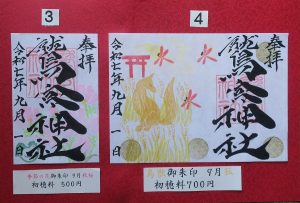 3
4
奉拝
神社
令和七年九月一日
奉拝
神社
令和七年九月一日
季節の花 御朱印 9月
初穂料 500円
御朱印 9月
初穂料700円